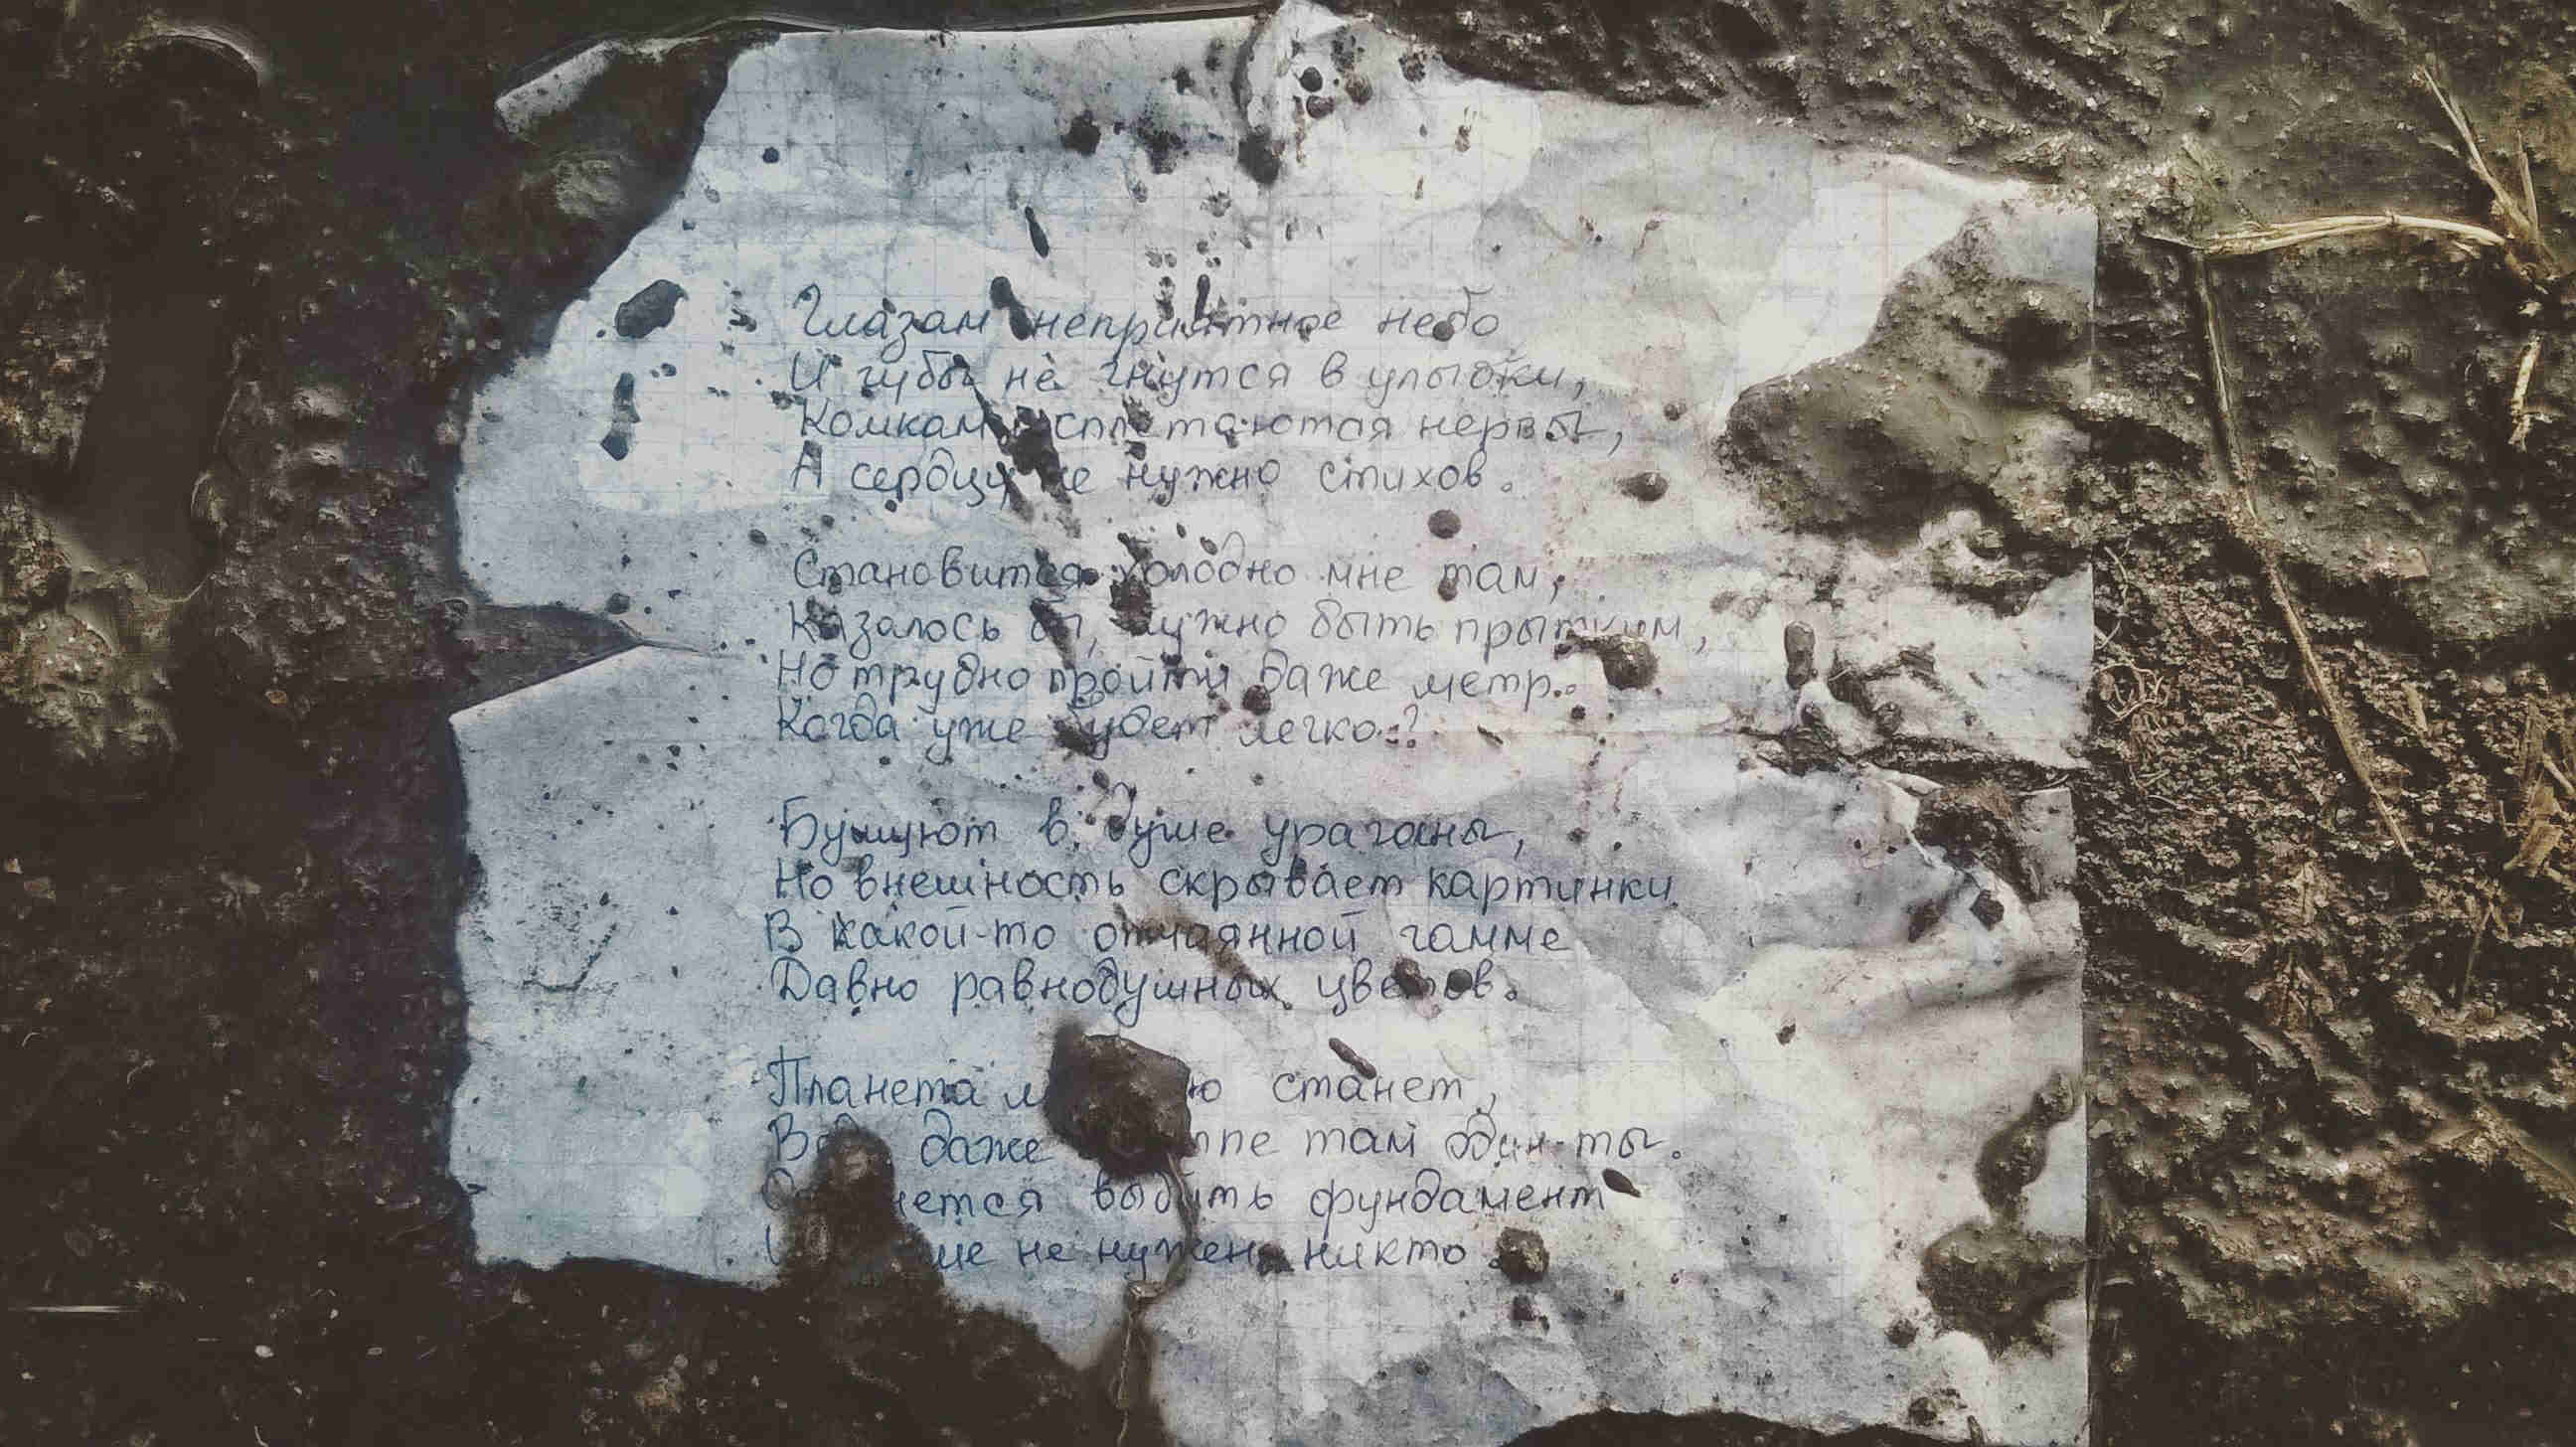 Глазам неприятное небо
И губы не гнутся в улыбки,
Комкам сплетаются нервы,
А сердцу не нужно стихов.
Становится холодно мне там,
Казалось бы, нужно быть прытким,
Но трудно пройти даже метр..
Когда уже будет легко..?
Бушуют в душе ураганы,
Но внешность скрывает картинки
В какой-то отчаянной гамме
Давно равнодушных цветов.
Планета станет,
даже там один ты.
выбить фундамент
не нужен никто.